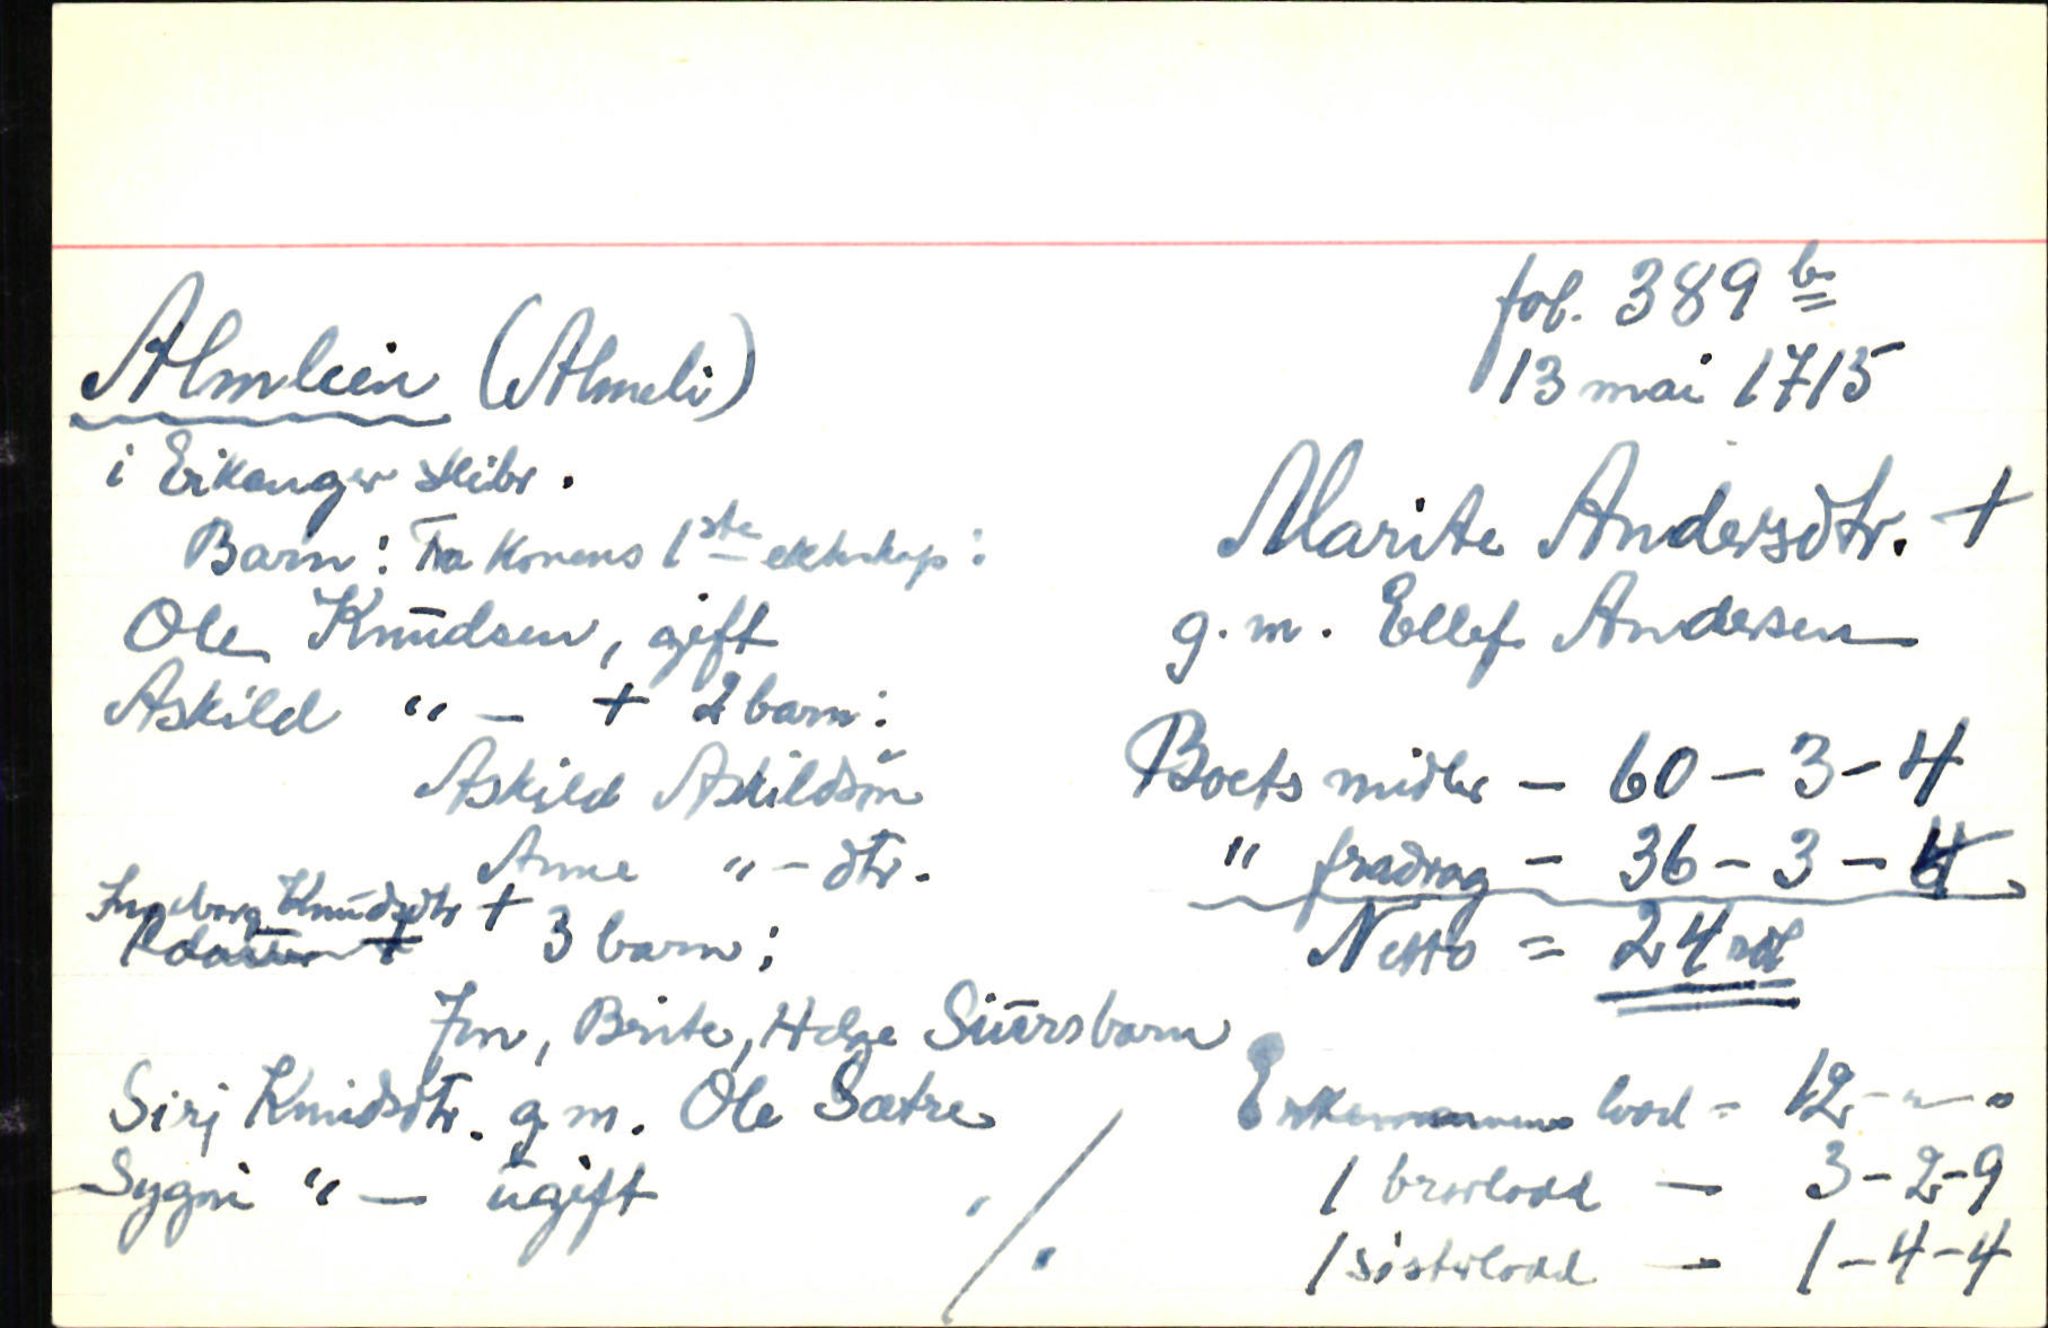 fol. 389 b
13 mai 1715
Almlein (Almeli)
i Eikanger skibr.
Marite Andersdtr. +
g. m. Ellef Andersen
Barn: Fra konens 1ste ekteskap:
Ole Knudsen, gift
Askild " — + 2 barn:
Askild Askildsøn
Anne " — dtr.
Ingeborg Knudsdtr +
+ 3 barn:
Jon, Brite, Helge Siursbarn
Sirj Knudsdtr. g. m. Ole Sætre
Sygni " — ugift
Boets midler — 60 — 3 — 4
" fradrag — 36 — 3 — 4
Netto = 24 rdl
Enkemannens lodd — 12 — " — "
1 brorlodd — 3 — 2 — 9
1 søsterlodd — 1 — 4 — 4